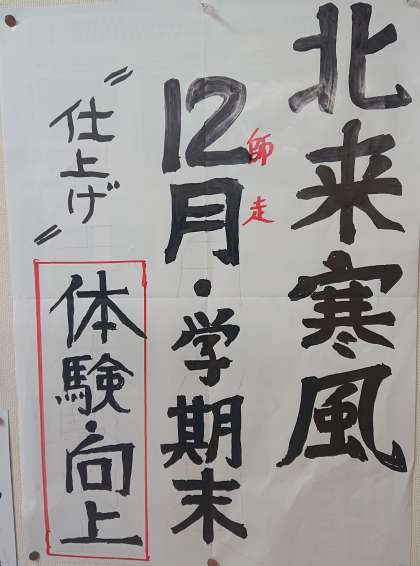 北来寒風
師走
12月・学期末
〝仕上げ〟
体験・向上